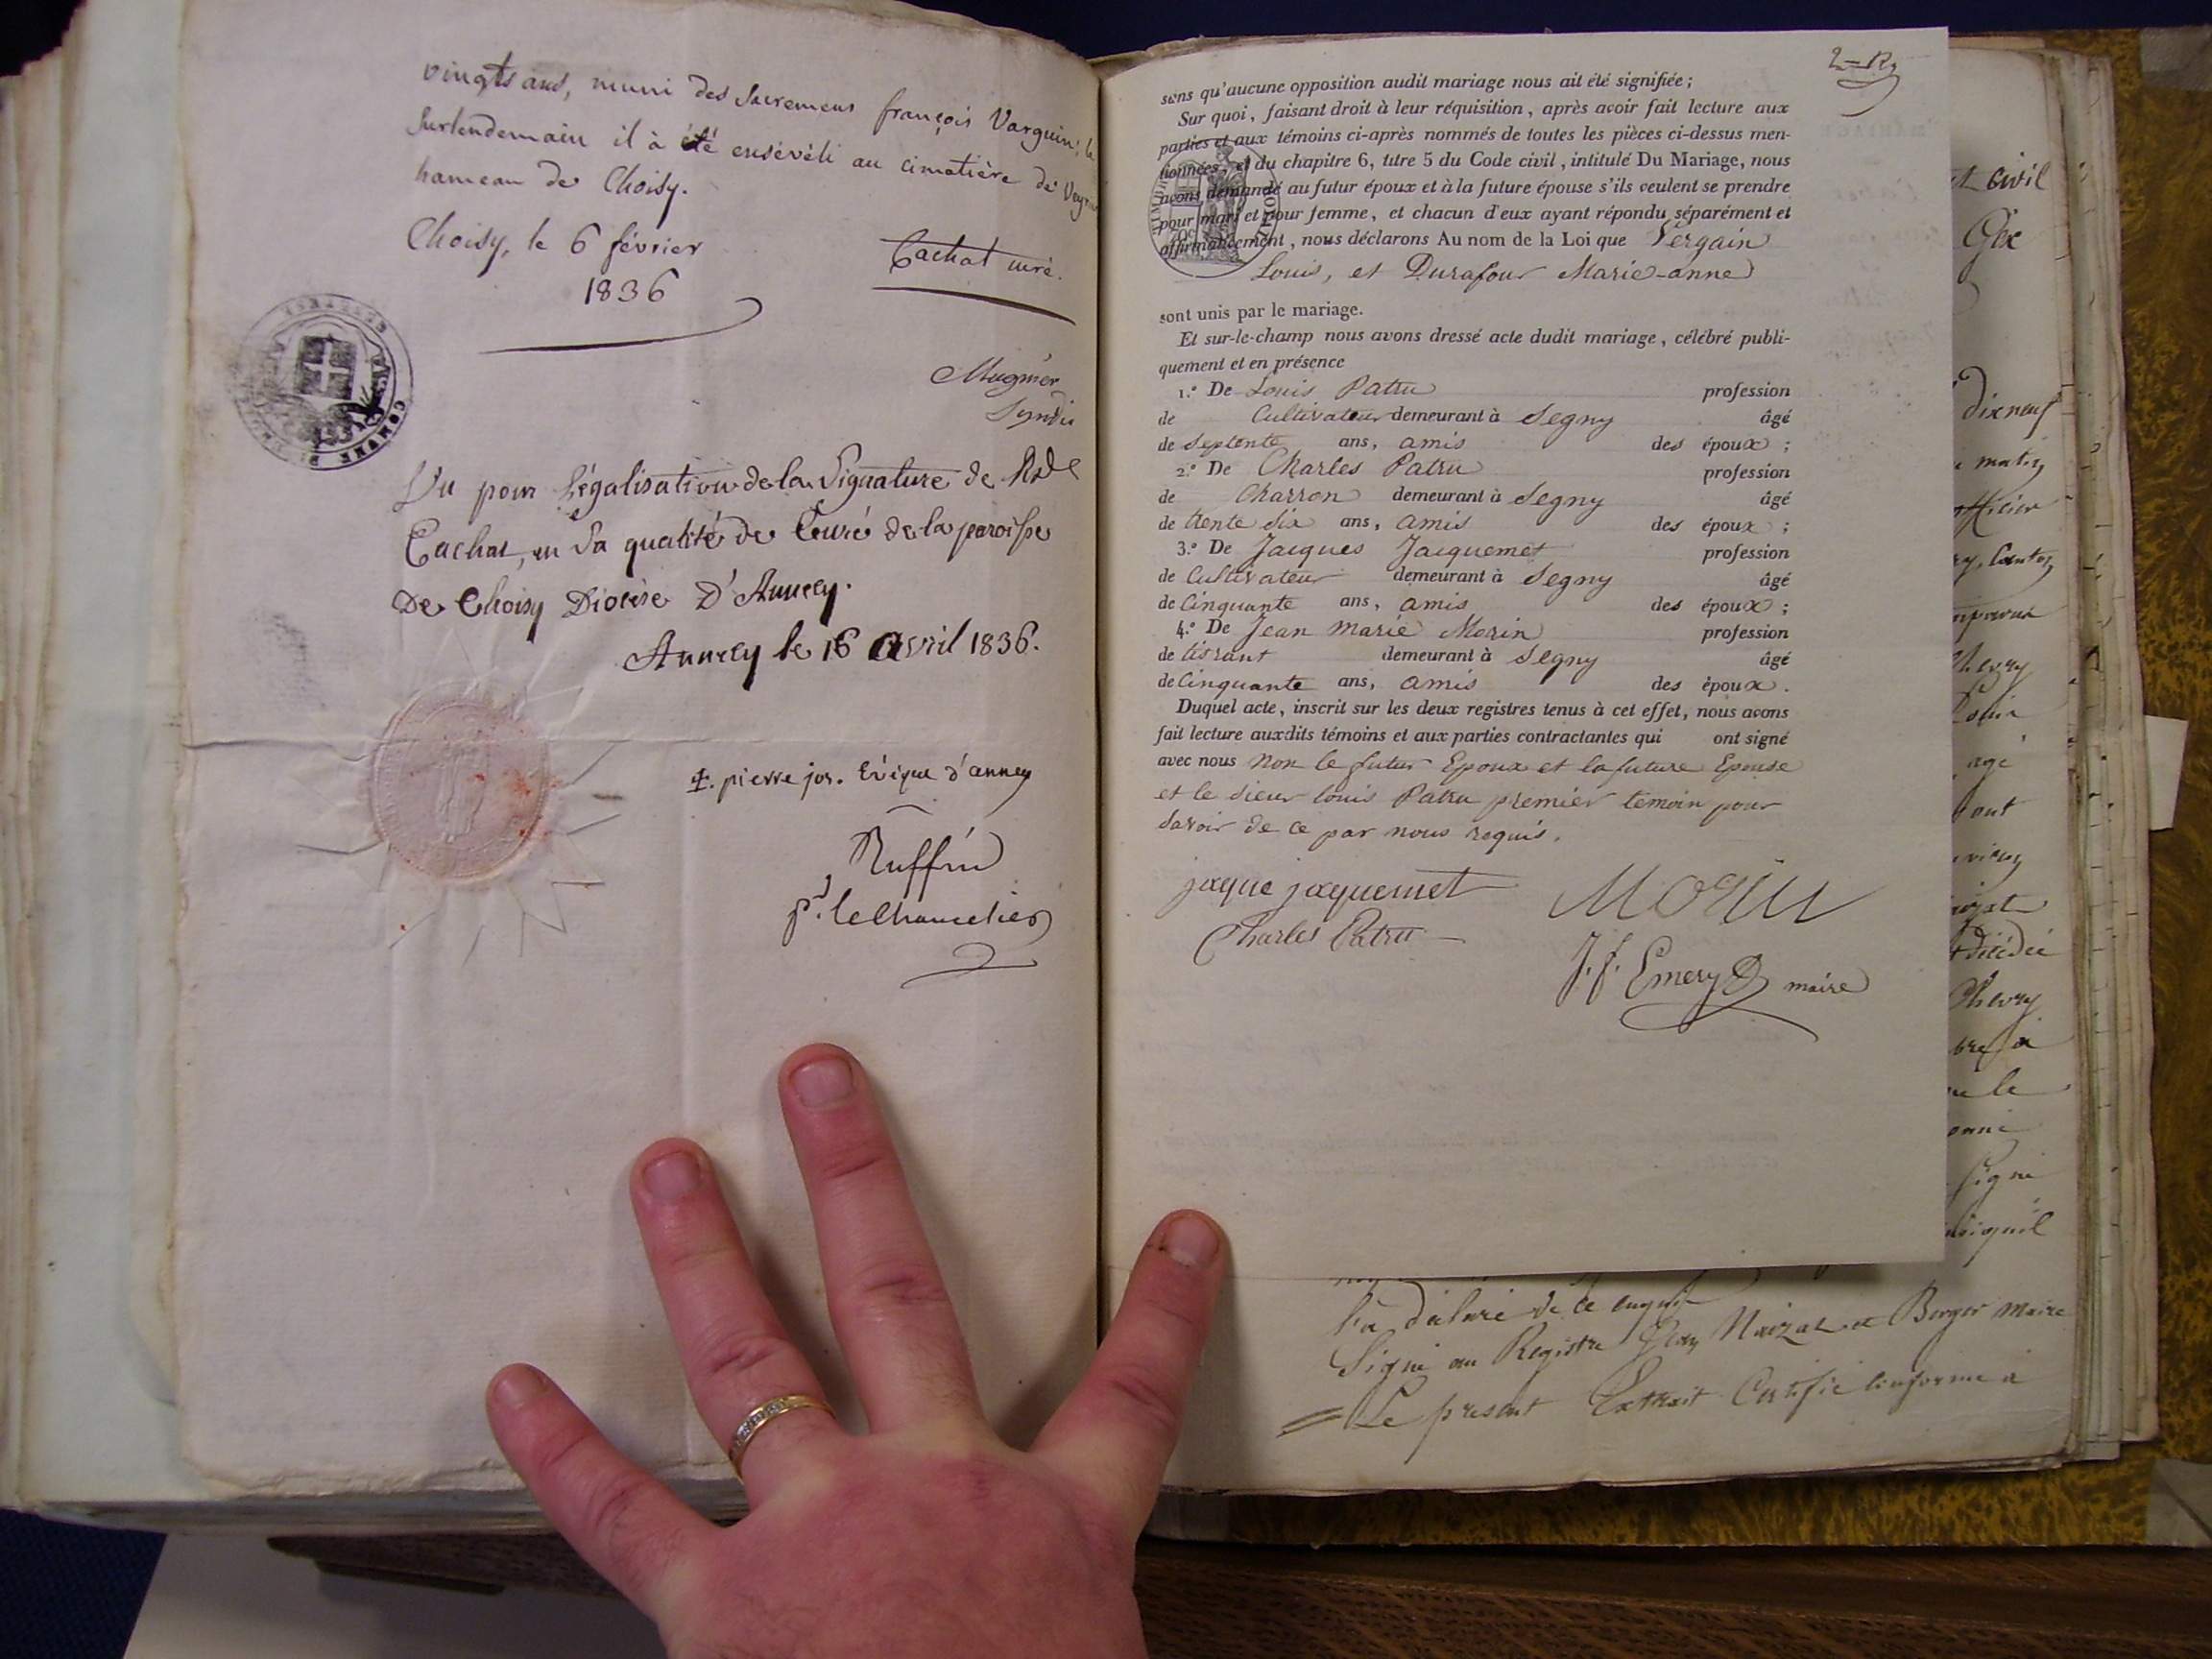 vingts ans, muni des Sacremens françois Varguin, le
surlendemain il à été ensévéli au cimetière de
hameau de Choisy.
Choisy, le 6 février
1836
Cachat curé.
Mugnier
Syndic
COMMUNE
Vu pour légalisation de la Signature de Rd
Cachat, en Sa qualité de Curé de la paroisse
De Choisy Diocèse D'Annecy.
Annecy le 16 avril 1836.
pierre jos. Evêque d'annecy
Ruffin
p. le Chancelier
sans qu'aucune opposition audit mariage nous ait été signifiée ;
Sur quoi, faisant droit à leur réquisition, après avoir fait lecture aux
parties et aux témoins ci-après nommés de toutes les pièces ci-dessus men-
tionnées, et du chapitre 6, titre 5 du Code civil, intitulé Du Mariage, nous
avons demandé au futur époux et à la future épouse s'ils veulent se prendre
pour mari et pour femme, et chacun d'eux ayant répondu séparément et
affirmativement, nous déclarons Au nom de la Loi que Vergain
Louis, et Durafour Marie-anne
sont unis par le mariage.
Et sur-le-champ nous avons dressé acte dudit mariage, célébré publi-
quement et en présence
1.° De Louis Patru profession
de Cultivateur demeurant à Segny âgé
de Septente ans, amis des époux ;
2.° De Charles Patru profession
de Charron demeurant à Segny âgé
de trente six ans, amis des époux ;
3.° De Jacques Jacquemet profession
de Cultivateur demeurant à Segny âgé
de Cinquante ans, amis des époux ;
4.° De Jean marie Morin profession
de demeurant à Segny âgé
de Cinquante ans, amis des époux.
Duquel acte, inscrit sur les deux registres tenus à cet effet, nous avons
fait lecture auxdits témoins et aux parties contractantes qui ont signé
avec nous non le futur Epoux et la future Epouse
et le sieur louis Patru premier temoin pour
savoir de ce par nous requis.
jaque jaquemet
Morin
Charles Patru
J. f. Emery maire
civil
Gex
dixneuf
matin
officier
Chevry
agé
ont
décédé
Chevry
le
Signé
l'a déclaré de ce enquis
Signé au Registre Jean Nairat et Berger maire
Le présent Extrait Certifié conforme à